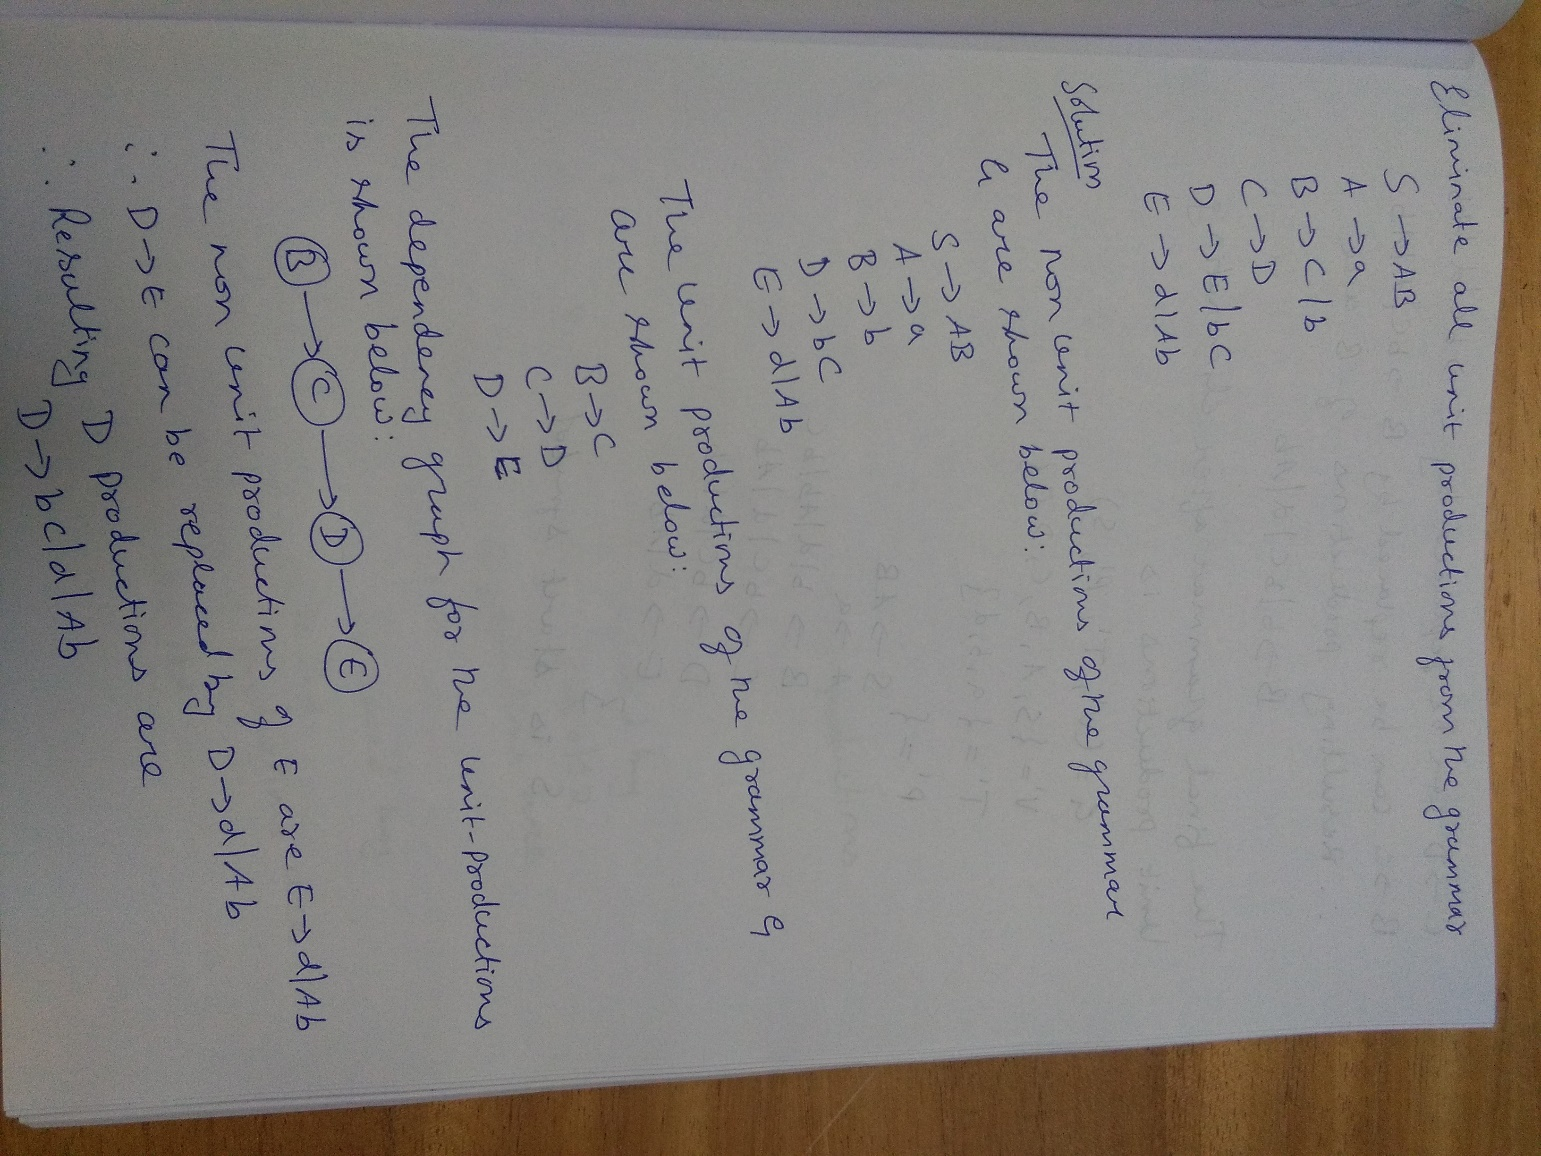 Eliminate all unit productions from the grammar
S → AB
A → a
B → C/b
C → D
D → E/bC
E → d/Ab
Solution
The non unit productions of the grammar
G are shown below:
S → AB
A → a
B → b
D → bC
E → d/Ab
The unit productions of the grammar G
are shown below:
B → C
C → D
D → E
The dependency graph for the unit-productions
is shown below:
B → C → D → E
The non unit productions of E are E → d/Ab
∴ D → E can be replaced by D → d/Ab
∴ Resulting D productions are
D → bC/d/Ab